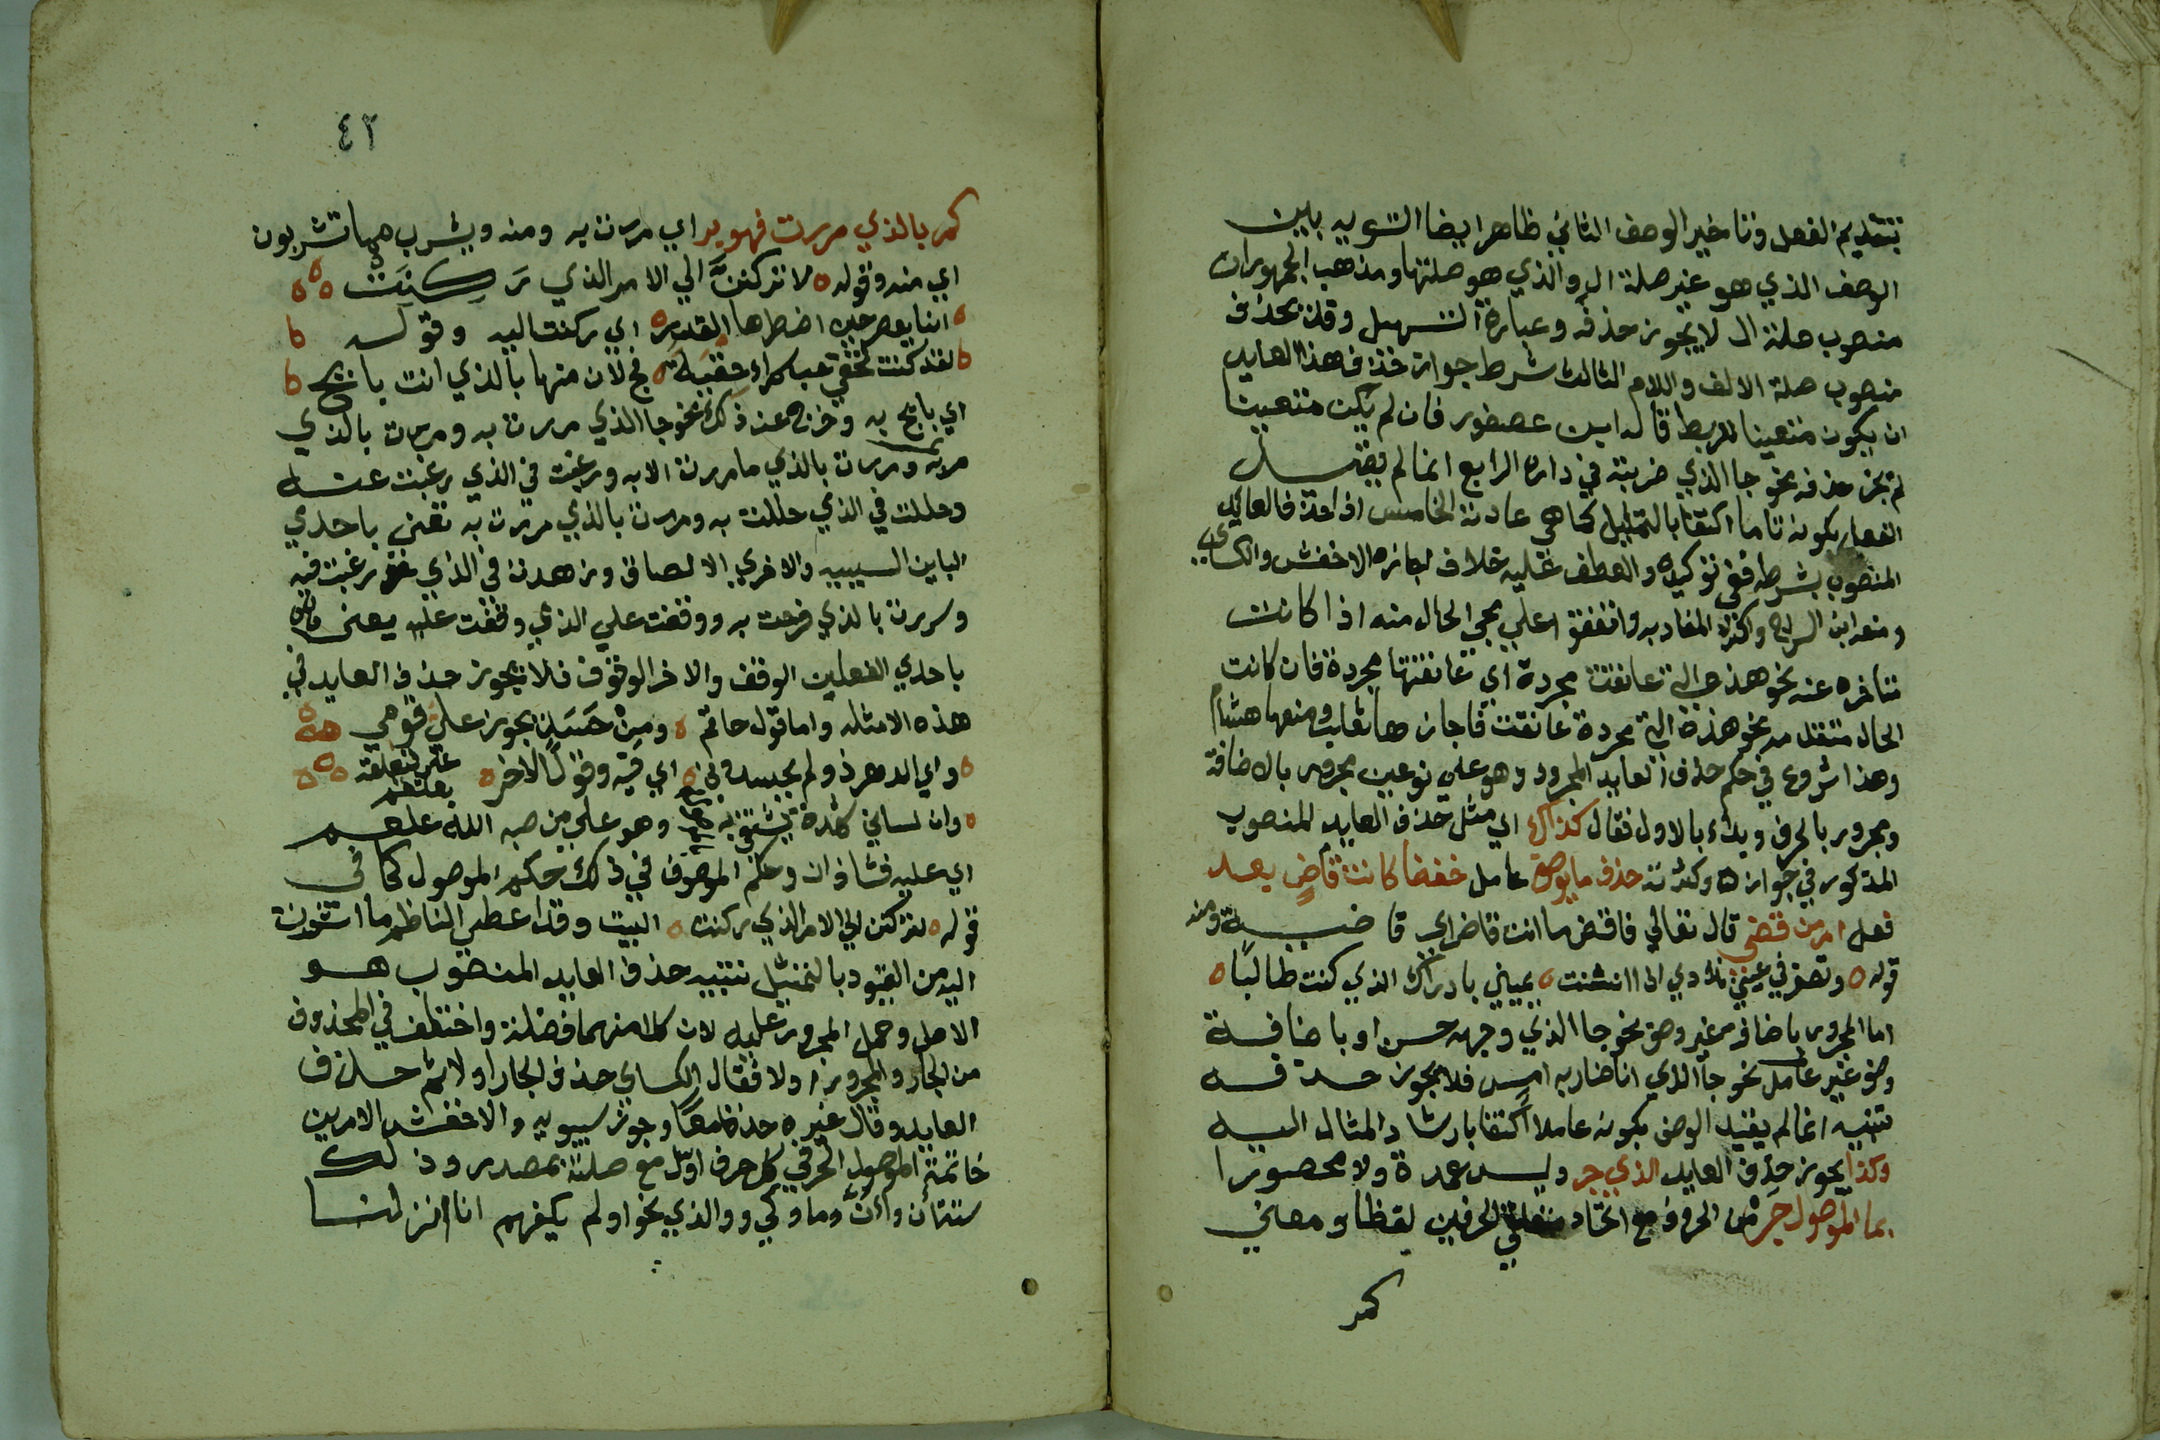 بتقديم الفعل وتاخير الوصف الثاني ظاهر ايضا التسويه بين
الوصف الذي هو غير صلة ال والذي هو صلتها ومذهب الجمهور ان
منصوب صلة ال لا يجوز حذفه وعبارة التسهيل وقد يحذف
منصوب صلة الالف واللام الثالث شرط جواز حذف هذا العايد
ان يكون متعينا للربط قاله ابن عصفور فان لم يكن متعينا
لم يجز حذفه نحو جا الذي ضربته في داره الرابع انما لم يقيد
الفعل بكونه تاما اكتفا بالتمثيل كما هي عادته الخامس اذا حذف العايد
المنصوب بشرطه ففي توكيده والعطف عليه خلاف اجازه الاخفش والكساي
ومنعه ابن السراج واكثر المغاربه واتفقوا علي مجي الحال منه اذا كانت
متاخره عنه نحو هذه التي عانقت مجردة اي عانقتها مجردة فان كانت
الحال متقدمه نحو هذه التي مجردة عانقت فاجازها ثعلب ومنعها هشام
وهذا شروع في حكم حذف العايد المجرور وهو علي نوعين مجرور بالاضافة
ومجرور بالحرف وبدء بالاول فقال كذاك اي مثل حذف العايد المنصوب
المذكور في جوازه وكثرته حذف ما بوصف عامل خفضا كانت قاض بعد
فعل امر من قضي قال تعالي فاقض ما انت قاض اي قاضيه ومنه
قوله ٥ وتصغر في عيني تلادي اذا انثنت ٥ يميني بادراك الذي كنت طالبا ٥
اما المجرور باضافة غير وصف نحو جا الذي وجهه حسن او باضافة
وصف غير عامل نحو جا الذي انا ضاربه امس فلا يجوز حذفه
تنبيه انما لم يقيد الوصف بكونه عاملا اكتفا بارشاد المثال اليه
وكذا يجوز حذف العايد الذي جر وليس عمدة ولا محصورا
بما الموصول جر من الحروف مع اتحاد متعلق الحرفين لفظا ومعني
كمر
٤٢
كمر بالذي مررت فهو بر اي مررت به ومنه ويشرب مما تشربون
اي منه وقوله ٥ لا تركنن الي الامر الذي ركنت ٥٥٥
٥ ابنا يعصر حين اضطرها القدر ٥ اي ركنت اليه وقوله ٥
٥ لقد كنت تخفي حب سمراء حقبة ٥ فبح لان منها بالذي انت بايح ٥
اي بايح به وخرج عن ذلك نحو جا الذي مررت به ومررت بالذي
مر به ومررت بالذي ما مررت الا به ورغبت في الذي رغبت عنه
وحللت في الذي حللت به ومررت بالذي مررت به تعني باحدي
البايين السببيه والاخري الالصاق وزهدت في الذي رغبت فيه
وسررت بالذي فرحت به ووقفت علي الذي وقفت عليه يعني
باحدي الفعلين الوقف والاخر الوقوف فلا يجوز حذف العايد في
هذه الامثله واما قول حاتم ٥ ومن حسد يجوز علي قومي ٥٥
٥ واي الدهر ذو لم يحسدوني ٥ اي فيه وقول الاخر ٥
٥ وان لساني شهدة يشتفي به وهو علي من صبه الله علقم
اي عليه فشاذان وحكم الموصوف في ذلك حكم الموصول كما في
قوله ٥ لا تركنن الي الامر الذي ركنت ٥ البيت وقد اعطي الناظم ما اشرت
اليه من القيود بالتمثيل تنبيه حذف العايد المنصوب هو
الاصل وحمل المجرور عليه لان كلا منهما فضلة واختلف في المحذوف
من الجار والمجرور اولا فقال الكساي حذف الجار اولا ثم حذف
العايد وقال غيره حذفا معا وجوز سيبويه والاخفش الامرين
خاتمة الموصول الحرفي كل حرف اول مع صلته بمصدر وذلك
ستة ان وان وما وكي ولو والذي نحو اولم يكفهم انا انزلنا